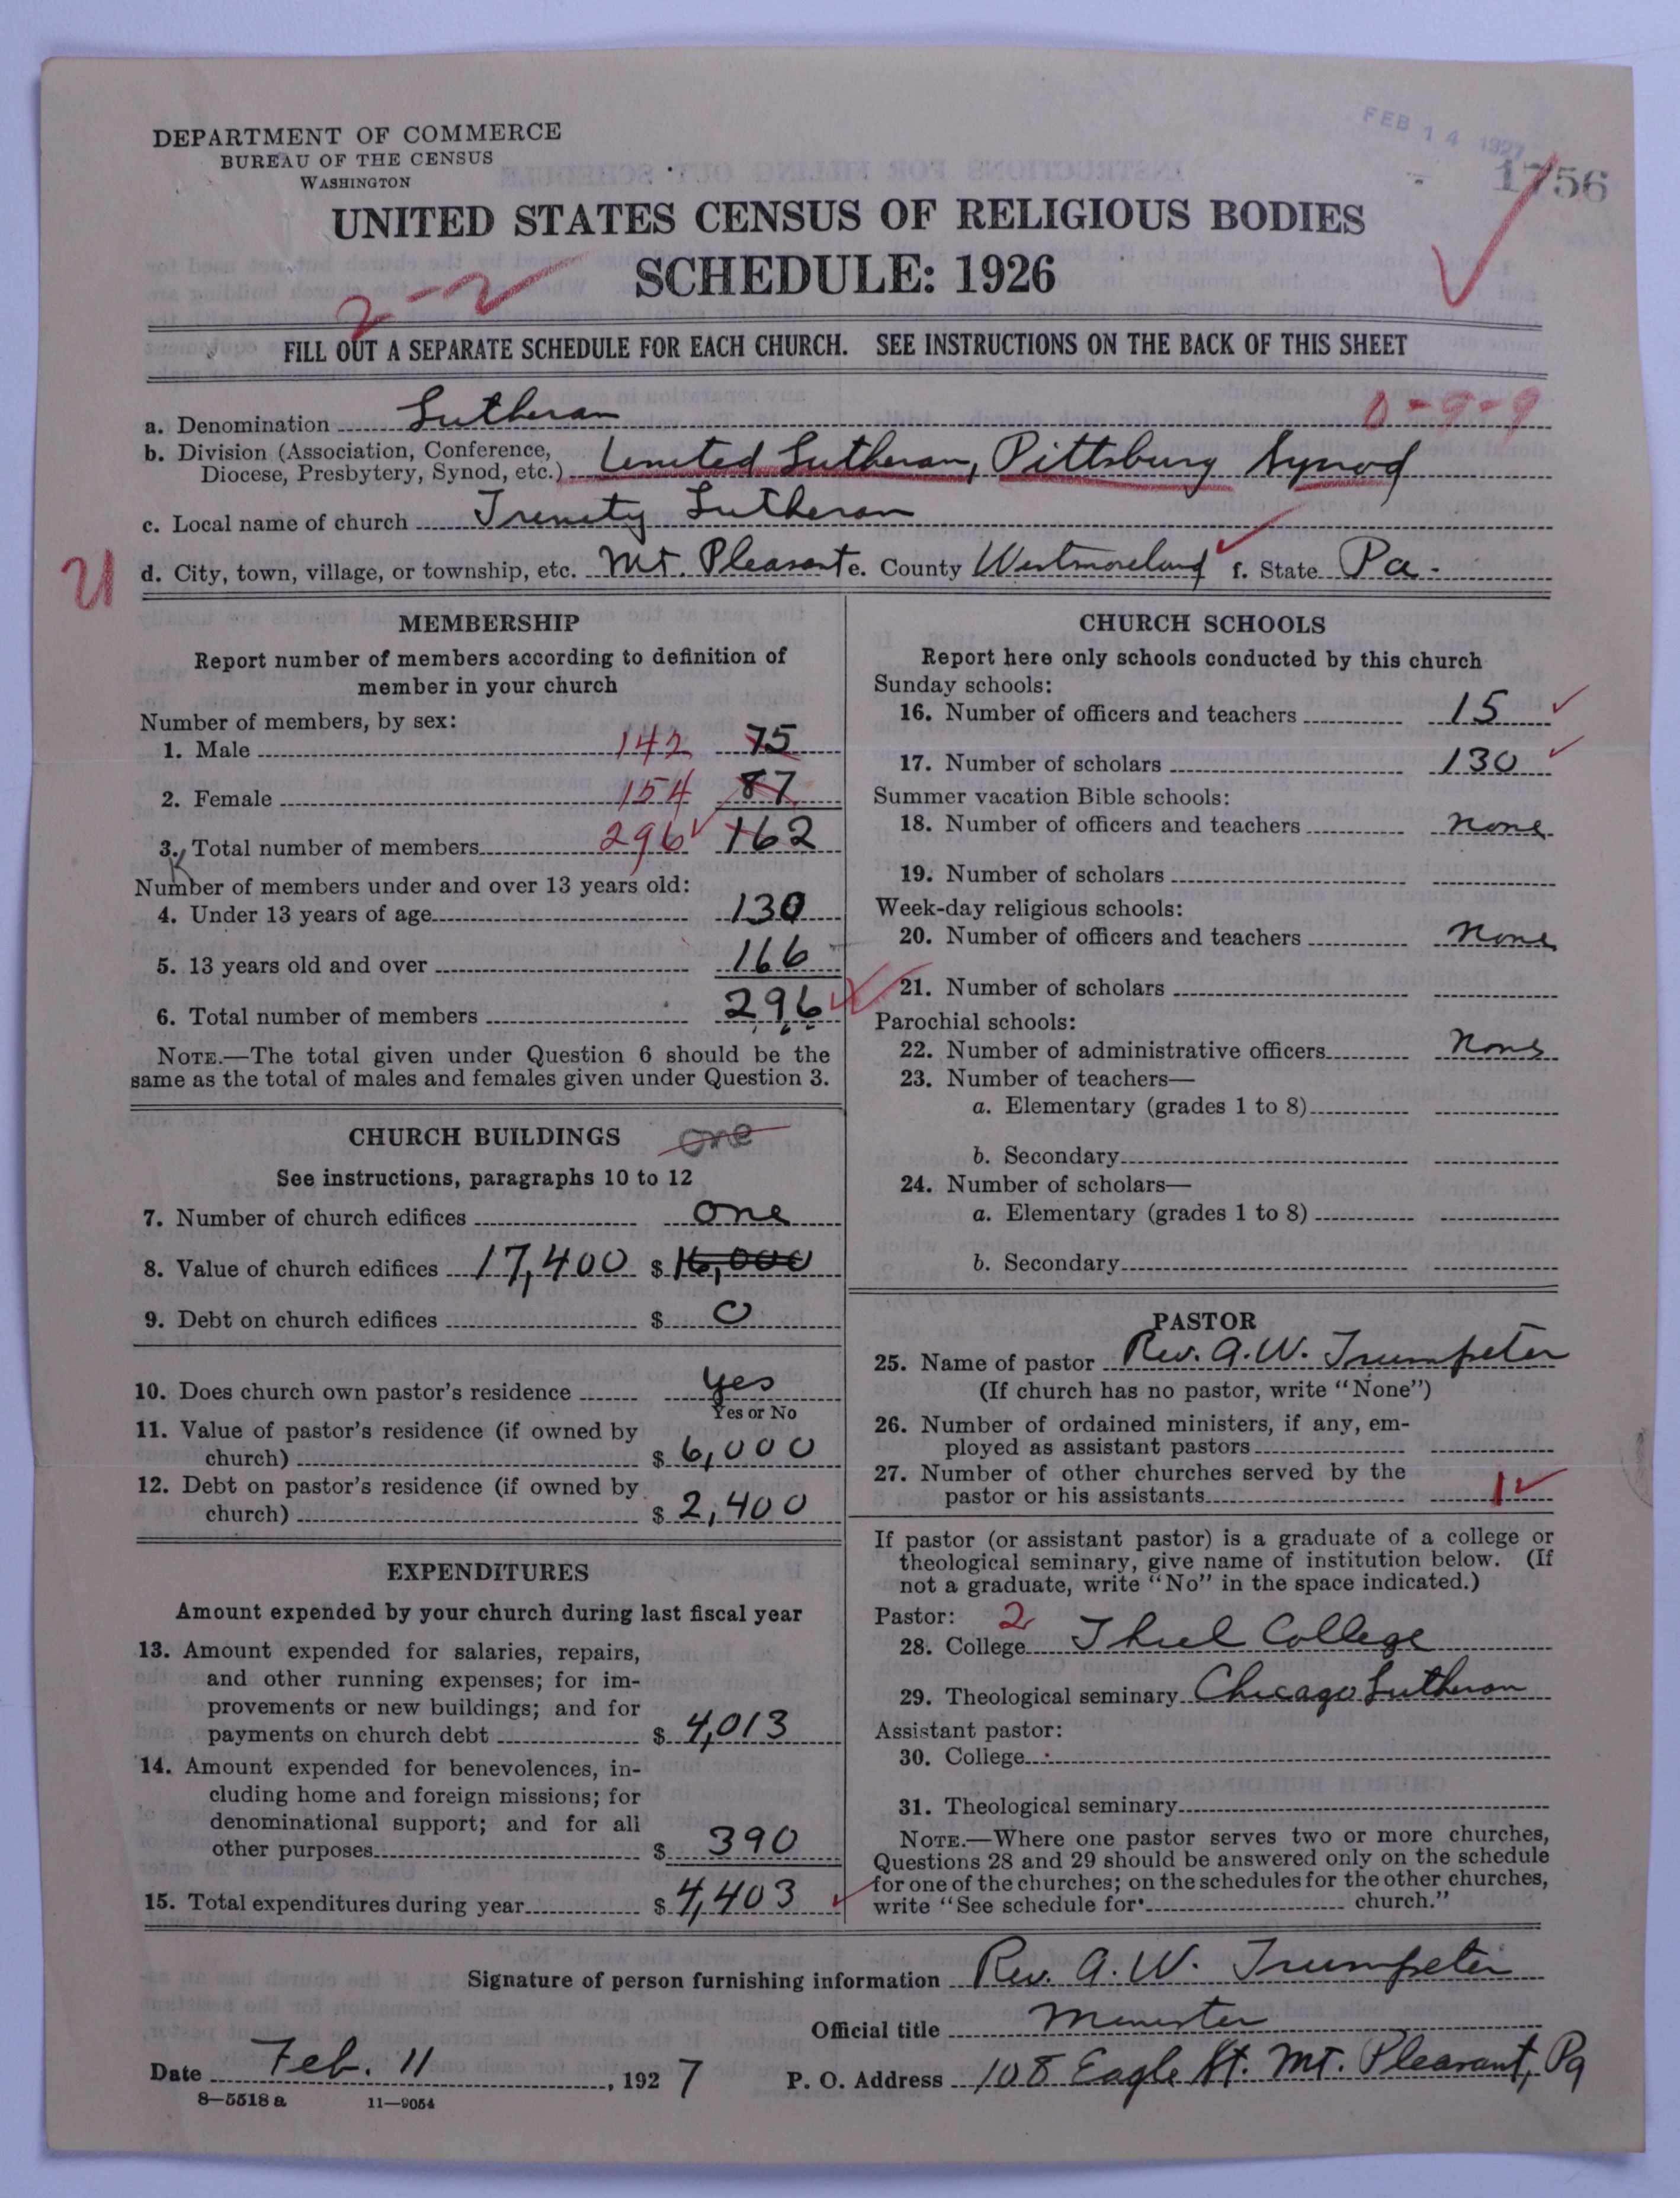 DEPARTMENT OF COMMERCE
BUREAU OF THE CENSUS
WASHINGTON
FEB 14 1927
1756
UNITED STATES CENSUS OF RELIGIOUS BODIES
SCHEDULE: 1926
2-2
FILL OUT A SEPARATE SCHEDULE FOR EACH CHURCH. SEE INSTRUCTIONS ON THE BACK OF THIS SHEET
0-9-9
a. Denomination Lutheran
b. Division (Association, Conference,
Diocese, Presbytery, Synod, etc.) United Lutheran, Pittsburg Synod
c. Local name of church Trinity Lutheran
d. City, town, village, or township, etc. Mt. Pleasant e. County Westmoreland f. State Pa.
MEMBERSHIP
Report number of members according to definition of
member in your church
Number of members, by sex:
1. Male 142 75
2. Female 154 87
3. Total number of members 296 162
Number of members under and over 13 years old:
4. Under 13 years of age 130
5. 13 years old and over 166
6. Total number of members 296
NOTE.—The total given under Question 6 should be the
same as the total of males and females given under Question 3.
CHURCH BUILDINGS one
See instructions, paragraphs 10 to 12
7. Number of church edifices one
8. Value of church edifices 17,400 $ 16,000
9. Debt on church edifices $ 0
10. Does church own pastor's residence yes
Yes or No
11. Value of pastor's residence (if owned by
church) $ 6,000
12. Debt on pastor's residence (if owned by
church) $ 2,400
EXPENDITURES
Amount expended by your church during last fiscal year
13. Amount expended for salaries, repairs,
and other running expenses; for im-
provements or new buildings; and for
payments on church debt $ 4,013
14. Amount expended for benevolences, in-
cluding home and foreign missions; for
denominational support; and for all
other purposes $ 390
15. Total expenditures during year $ 4,403
CHURCH SCHOOLS
Report here only schools conducted by this church
Sunday schools:
16. Number of officers and teachers 15
17. Number of scholars 130
Summer vacation Bible schools:
18. Number of officers and teachers none
19. Number of scholars
Week-day religious schools:
20. Number of officers and teachers none
21. Number of scholars
Parochial schools:
22. Number of administrative officers none
23. Number of teachers—
a. Elementary (grades 1 to 8)
b. Secondary
24. Number of scholars—
a. Elementary (grades 1 to 8)
b. Secondary
PASTOR
25. Name of pastor Rev. A. W. Trumpeter
(If church has no pastor, write "None")
26. Number of ordained ministers, if any, em-
ployed as assistant pastors
27. Number of other churches served by the
pastor or his assistants 1
If pastor (or assistant pastor) is a graduate of a college or
theological seminary, give name of institution below. (If
not a graduate, write "No" in the space indicated.)
Pastor: 2
28. College Thiel College
29. Theological seminary Chicago Lutheran
Assistant pastor:
30. College
31. Theological seminary
NOTE.—Where one pastor serves two or more churches,
Questions 28 and 29 should be answered only on the schedule
for one of the churches; on the schedules for the other churches,
write "See schedule for church."
Signature of person furnishing information Rev. A. W. Trumpeter
Official title Minister
Date Feb. 11, 1927 P. O. Address 108 Eagle St. Mt. Pleasant, Pa
8—5518 a 11—9054